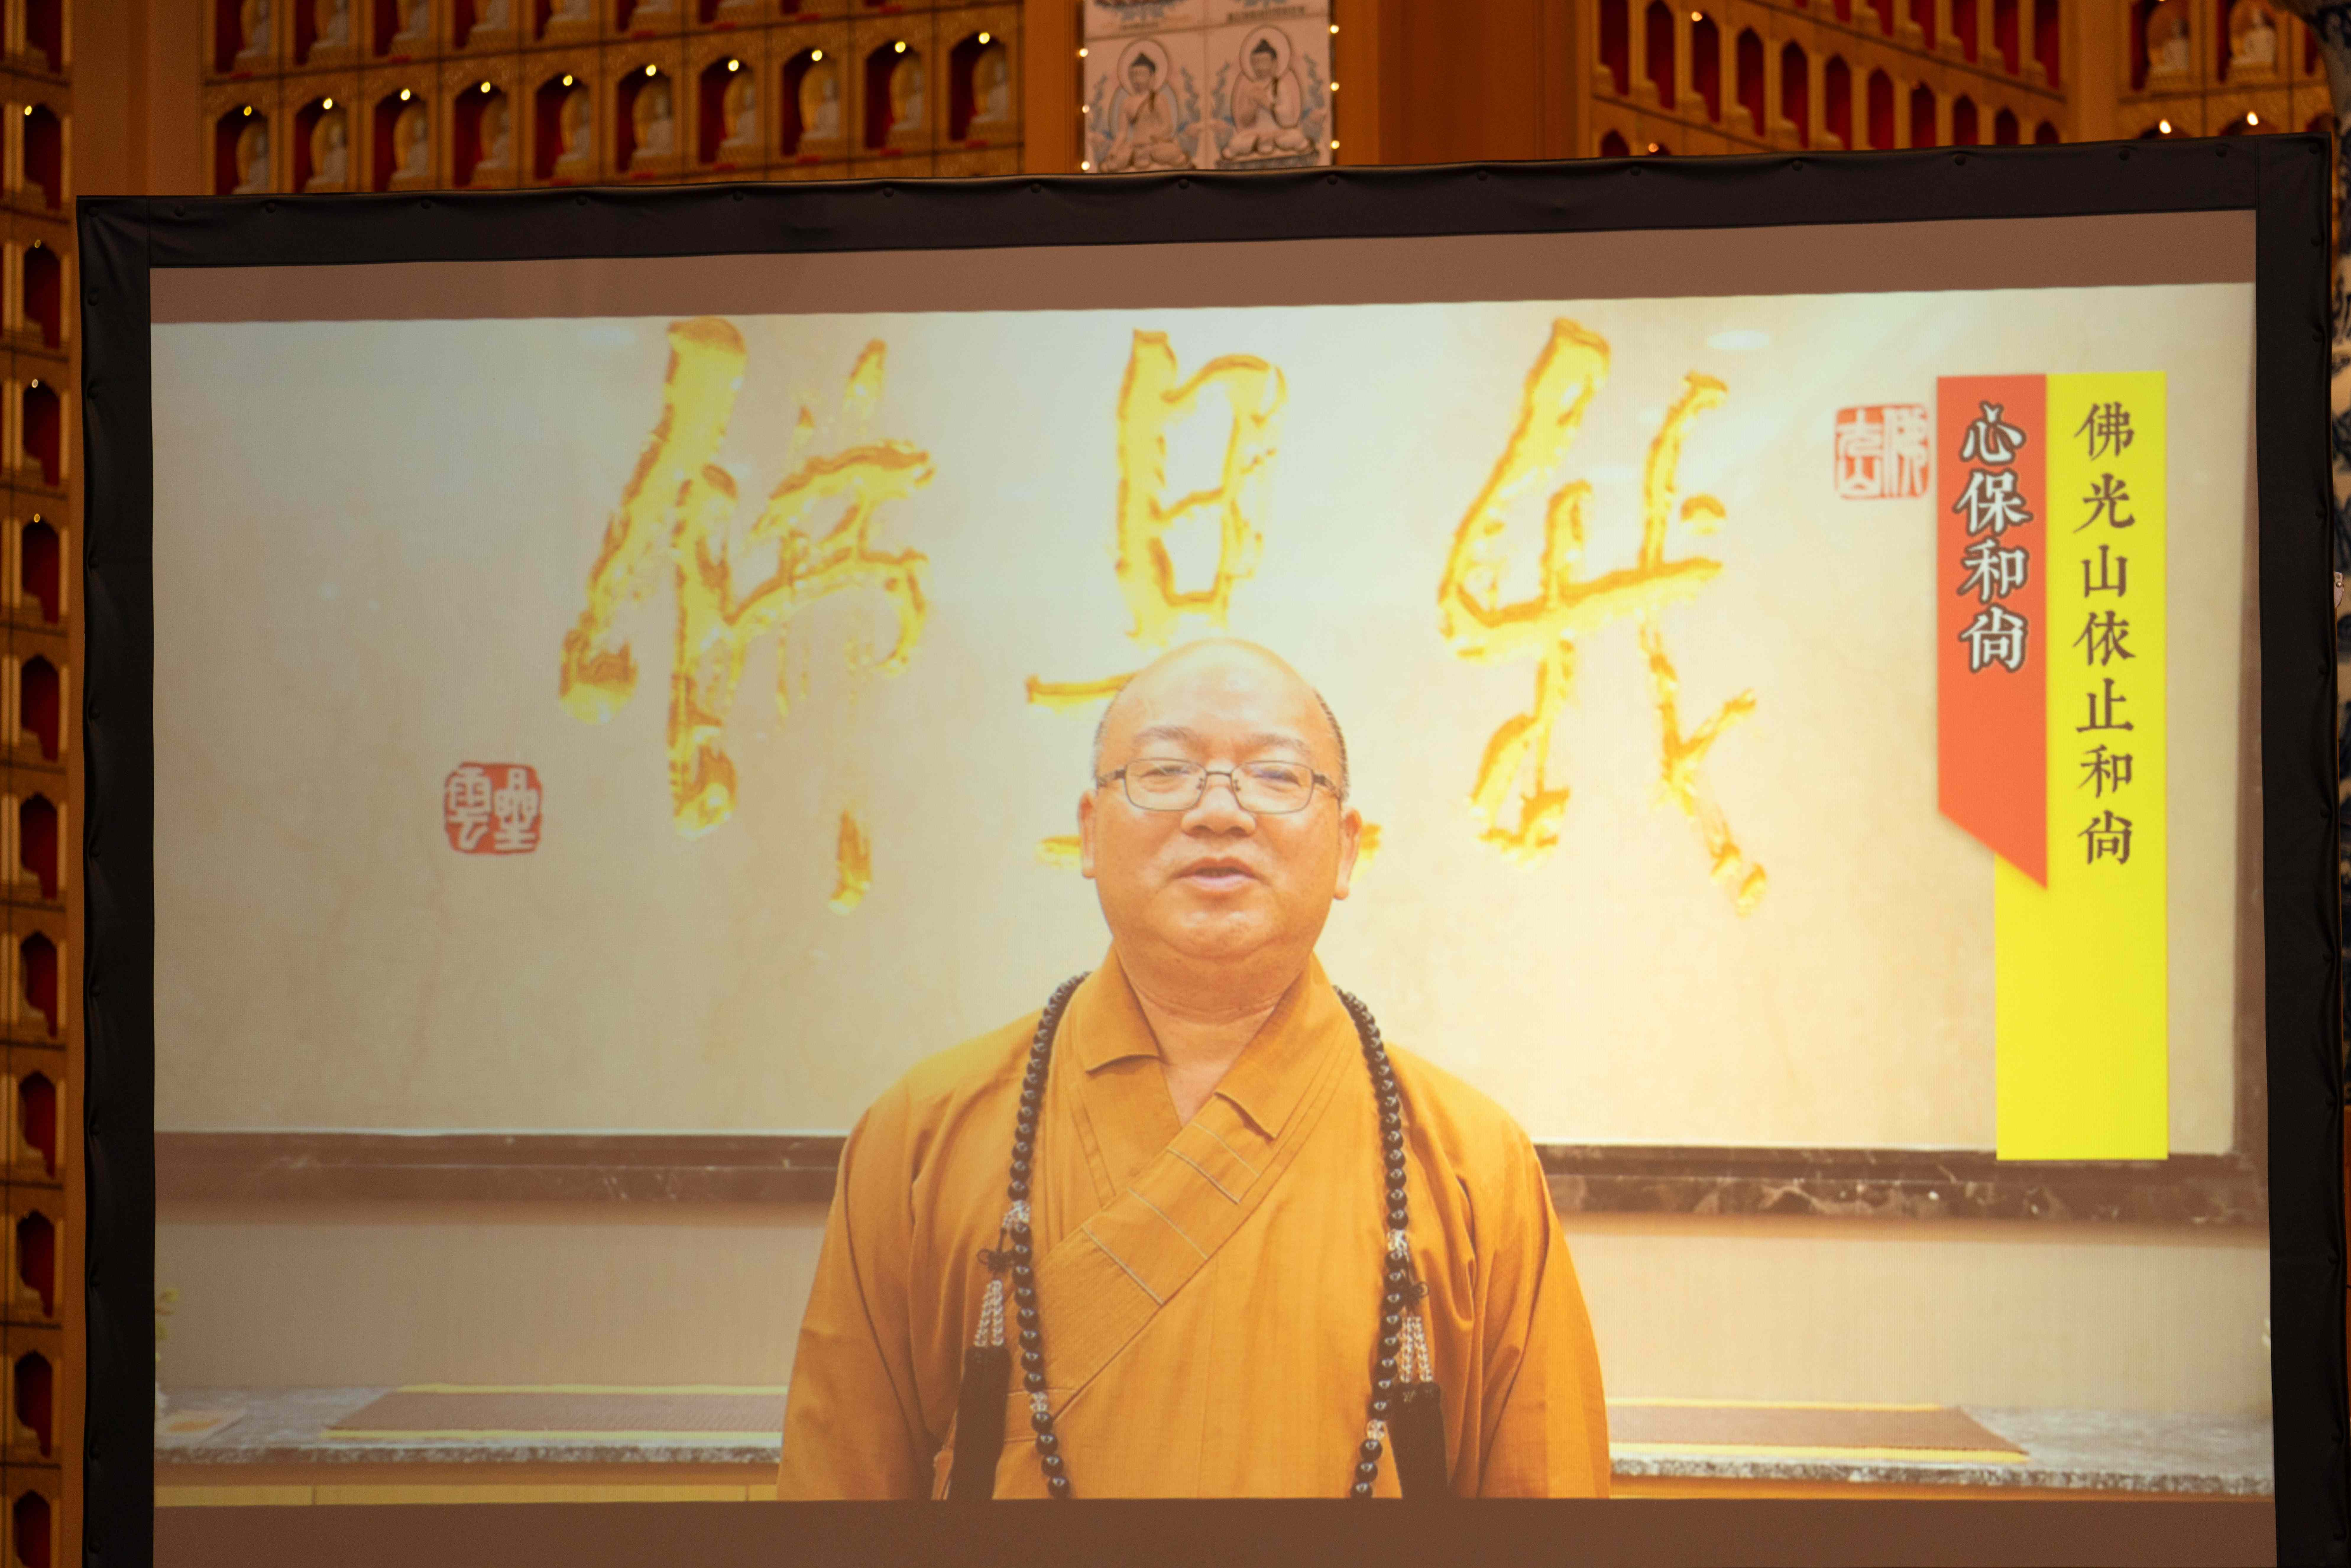 佛光山依止和尚
心保和尚
佛光山
我是佛
星雲